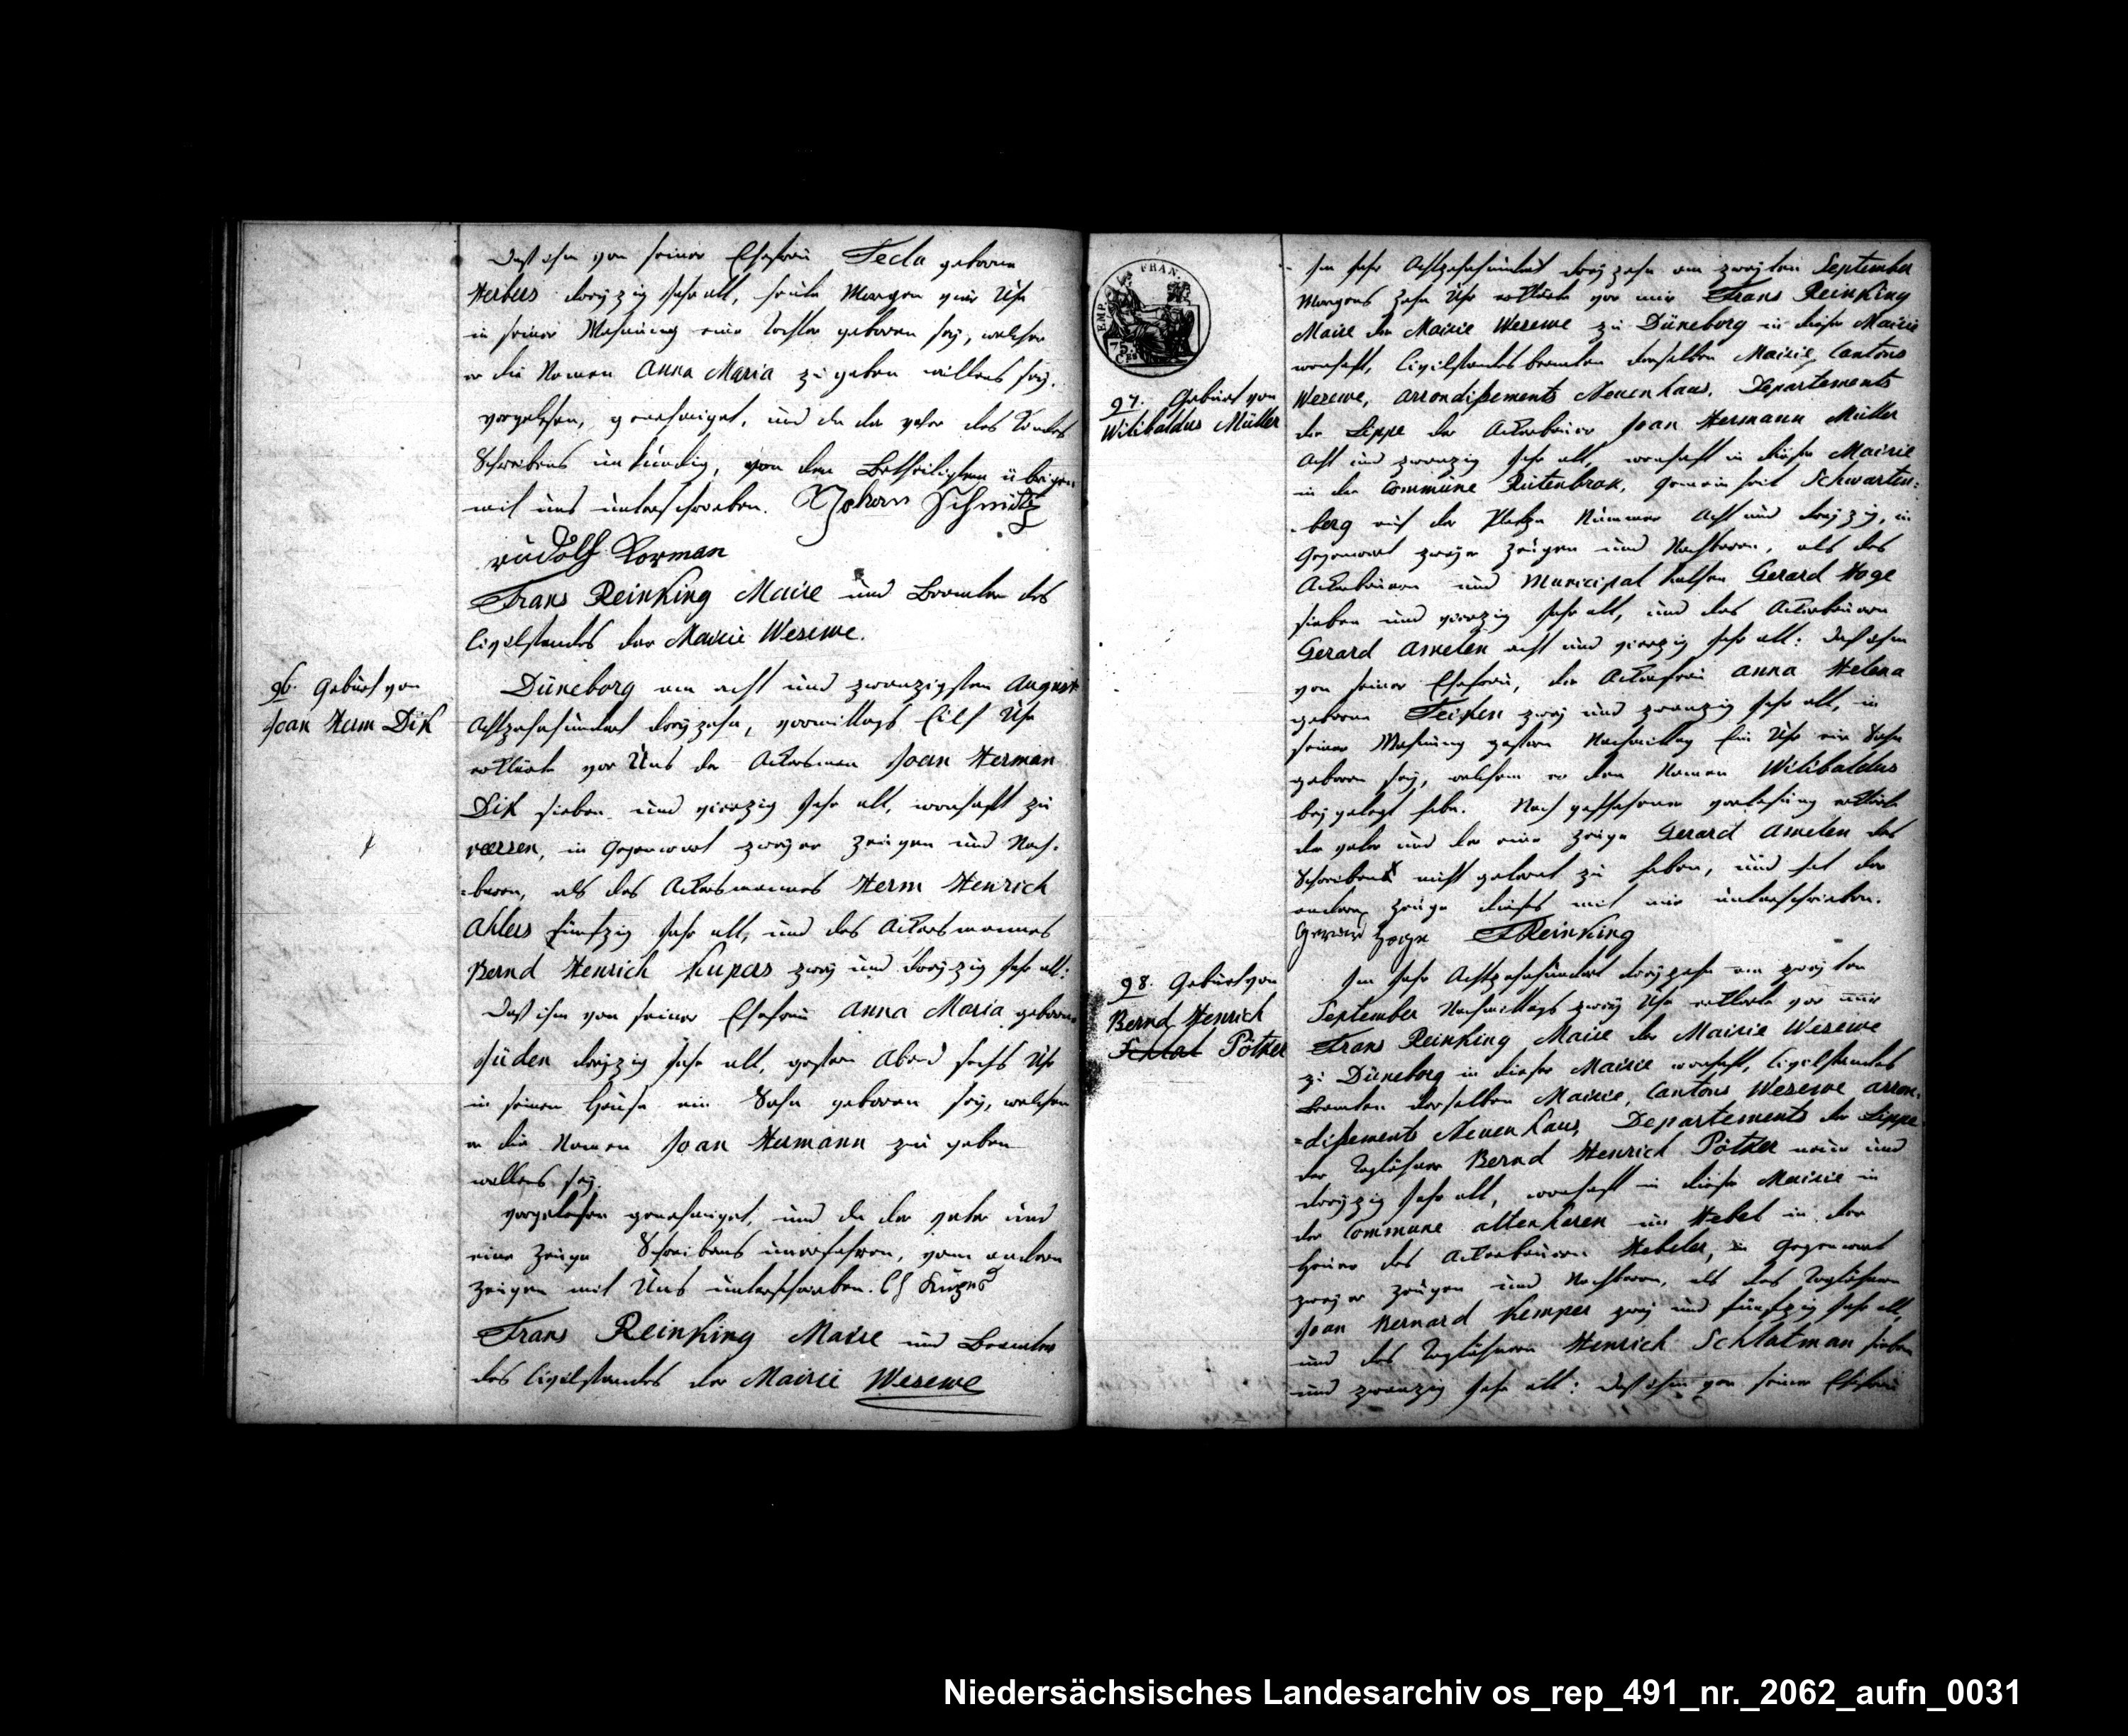 Daß ihm von seiner Ehefrau Tecla geborne
Herbers dreyzig Jahr alt, heute Morgen vier Uhr
in seiner Wohnung eine Tochter geboren sey, welcher
er die Namen Anna Maria zu geben willens sey.
vorgelesen, genehmiget, und da der Vater des Kindes
Schreibens unkündig, von den Betheiligten übrigen
mit uns unterschrieben. Johann Schmitz
Rudolf Korman
Frans Reinking Maire und Beamter des
Civilstandes der Mairie Wesewe.
96. Geburt von
Joan Herm Dik
Düneborg am acht und zwanzigsten August
Achtzehnhundert dreyzehn, vormittags Eilf Uhr
erklärte vor Uns der Ackersman Joan Herman
Dik sieben und vierzig Jahr alt, wonhaft zu
veersen, in Gegenwart zweyer Zeugen und Nach-
baren, als des Ackersmannes Herm Henrich
Ahlers fünfzig Jahr alt, und des Ackersmannes
Bernd Henrich Kupers zwey und dreyzig Jahr alt:
Daß ihm von seiner Ehefrau Anna Maria geborne
Süden dreyzig Jahr alt, gestern Abend sechs Uhr
in seinem Hause ein Sohn geboren sey, welchem
er die Namen Joan Hermann zu geben
willens sey.
vorgelesen genehmiget, und da der Vater und
eine Zeuge Schreibens unerfahren, vom andern
Zeugen mit Uns unterschrieben.
Frans Reinking Maire und Beamter
des Civilstandes der Mairie Wesewe
EMP. FRAN.
75. CES
97. Geburt von
Wilibaldus Müller
Im Jahr Achtzehnhundert dreyzehn am zweyten September
Morgens zehn Uhr erklärte vor mir Frans Reinking
Maire der Mairie Wesewe zu Düneborg in dieser Mairie
wonhaft, Civilstandsbeamten derselben Mairie, Cantons
Wesewe, arrondißements Neuenhaus, Departements
der Lippe der Ackerbauer Joan Hermann Müller
Acht und zwanzig Jahr alt, wonhaft in dieser Mairie
in der Commüne Rütenbrok, Gemeinheit Schwarten-
berg auf der Platze Nummer Acht und dreyzig, in
Gegenwart zweyer Zeugen und Nachbaren, als des
Ackerbauern und Municipal Gerard Hoge
sieben und vierzig Jahr alt, und des Ackerbauern
Gerard Amelen acht und vierzig Jahr alt: daß ihm
von seiner Ehefrau, der Ackerfrau Anna Helena
geborne Feiken zwey und zwanzig Jahr alt, in
seiner Wohnung gestern Nachmittag Ein Uhr ein Sohn
geboren sey, welchem er den Namen Wilibaldus
beygelegt habe. Nach geschehener Vorlesung erklärte
der Vater und der eine Zeuge Gerard Amelen des
Schreibens nicht gelernt zu haben, und hat der
andere Zeuge dieses mit mir unterschrieben.
Gerard Hoge FReinking
98. Geburt von
Bernd Henrich
Schlat Pötker
Im Jahr Achtzehnhundert dreyzehn am zweyten
September Nachmittags zwey Uhr erklärte vor mir
Frans Reinking Maire der Mairie Wesewe
zu Düneborg in dieser Mairie wonhaft, Civilstandes
Beamten derselben Mairie, Cantons Wesewe arron-
=dißements Neuenhaus, Departements der Lippe
der Taglöhner Bernd Henrich Pötker neun und
dreyzig Jahr alt, wonhaft in dieser Mairie in
der Commune altenharen im Hebel in der
Heuer des Ackerbauern Hebeler, in Gegenwart
zweyer Zeugen und Nachbaren, als des Taglöhners
Joan Bernard Kemper zwey und fünfzig Jahr alt,
und des Taglöhners Henrich Schlatman sieben
und zwanzig Jahr alt: daß ihm von seiner Ehefrau
Niedersächsisches Landesarchiv os_rep_491_nr._2062_aufn_0031